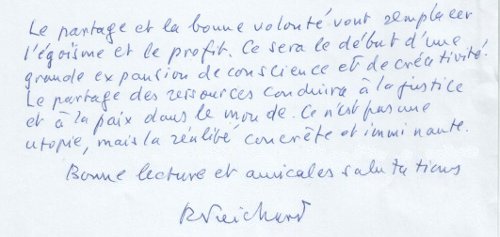 Le partage et la bonne volonté vont remplacer
l'égoïsme et le profit. Ce sera le début d'une
grande expansion de conscience et de créativité.
Le partage des ressources conduira à la justice
et à la paix dans le monde. Ce n'est pas une
utopie, mais la réalité concrète et imminante.
Bonne lecture et amicales salutations